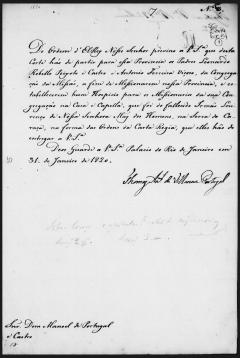 De Ordem d'ElRey Nosso Senhor previno a V.Sª que desta
Corte hão de partir para essa Provincia os Padres Leandro
Rebello Peixoto e Castro e Antonio Ferreira Viçozo, da Congrega
ção da Missão, a fim de Missionarem nessa Provincia, e es
tabelecerem hum Hospicio para os Missionarios da sua Con
gregação na Caza e Capella, que foi do fallecido Irmão Lou
renço de Nossa Senhora May dos Homens, na Serra do Ca
raça, na forma das Ordens da Carta Regia, que elles hão de
entregar a V.Sª
Deos Guarde a V.Sª Palacio do Rio de Janeiro em
31. de Janeiro de 1820.
Thomaz Antº de Villanova Portugal
Snr. Dom Manoel de Portugal
e Castro